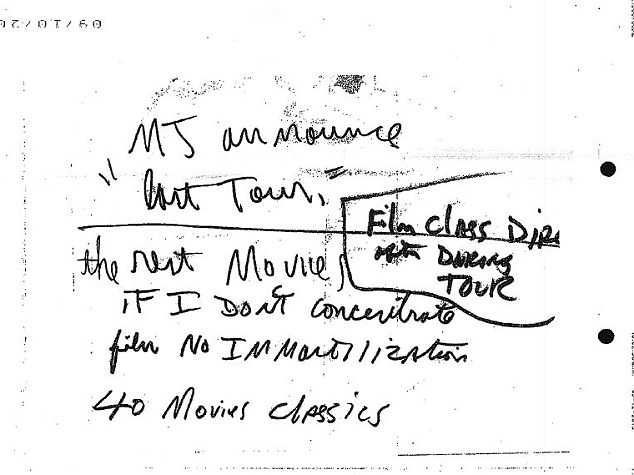 MJ announce
"last Tour,"
Film class Dire
DURING
TOUR
the rest Movies
IF I DONT concentrate
film No IMMortilization
40 Movies classics